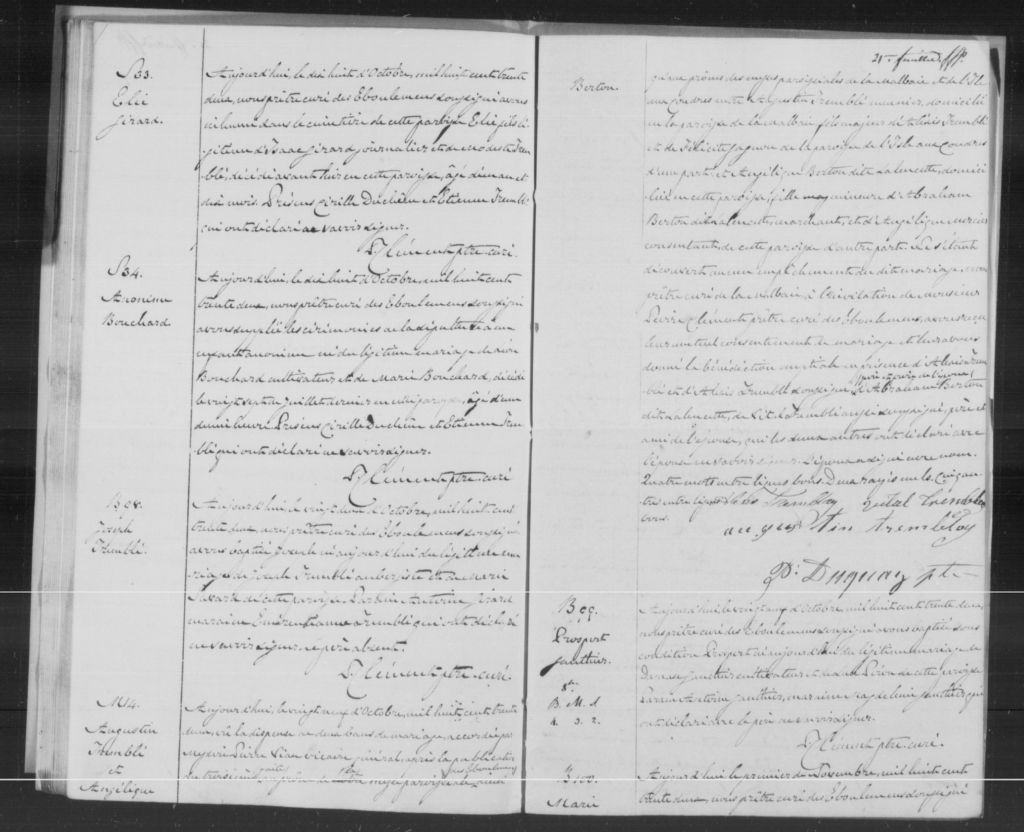 S33.
Elie
Girard.
Aujourd'hui, le dix huit d'Octobre, mil huit cent trente
deux, nous prêtre curé des Eboulemens soussigné avons
inhumé dans le cimetière de cette paroisse Elie fils lé-
gitime d'Isaac Girard journalier et de Modeste Trem
blé, décédé avant hier en cette paroisse, âgé d'un an et
dix mois. Présens Cirille Duchêne et Etienne Tremblé
qui ont déclaré ne savoir signer.
Clément ptre curé.
S34.
Anonime
Bouchard
Aujourd'hui, le dix huit d'Octobre, mil huit cent
trente deux, nous prêtre curé des Eboulemens soussigné
avons suppléé les cérémonies de la sépulture à un
enfant anonime né du légitime mariage de
Bouchard cultivateur et de Marie Bouchard, décédé
le vingt sept de juillet dernier en cette paroisse, âgé d'une
demi heure. Présens Cirille Duchêne et Etienne Trem
blé qui ont déclaré ne savoir signer.
Clément ptre curé
B 98.
Joseph
Tremblé.
Aujourd'hui le vingt deux d'Octobre, mil huit cent
trente deux, nous prêtre curé des Eboulemens soussigné
avons baptisé Joseph né aujourd'hui du légitime ma
riage de Joseph Tremblé aubergiste et de Marie
Savard de cette paroisse. Parrein Antoine Girard
maraine Tremblé qui ont déclaré
ne savoir signer. Le père absent.
Clément ptre curé.
M14.
Augustin
Tremblé
et
Angélique
Aujourd'hui, le vingt neuf d'Octobre, mil huit cent trente
deux, vû la dispense de deux bans de mariage, accordée par
Messire Pierre vicaire général, après la publication
du troisième faite au prône de notre messe paroissiale, ainsi
21e feuillet
Berton.
qu'aux prônes des messes paroissiales de la Malbaie et de l'Isle
aux Coudres entre Augustin Tremblé meunier, domicilié
en la paroisse de la Malbaie fils majeur d'Alexis Tremblé
et de Félicité Gagnon de la paroisse de l'Isle aux Coudres
d'une part; et Angélique Berton dite Lalancette, domici
liée en cette paroisse, fille mineure d'Abraham
Berton dit Lalancette, marchand, et d'Angélique
consentant, de cette paroisse d'autre part. Ne s'étant
découvert aucun empêchement au dit mariage, nous
prêtre curé de la Malbaie à l'invitation de Monsieur
Pierre Clément prêtre curé des Eboulemens, avons reçu
leur mutuel consentement de mariage et leur avons
donné la bénédiction nuptiale en présence d'Alexis Trem
blé et d'Alexis Tremblé soussigné, d'Abraham Berton
dit Lalancette, de Vital Tremblé aussi soussigné, père et
ami de l'épouse, qui les deux autres ont déclaré avec
l'épouse ne savoir signer. L'époux a signé avec nous.
Quatre mots entre lignes bons. Deux rayés nuls. Cinq au
tres entre lignes
bons. Alexis Tramblay Vital Tremblay
augustin tremblay
Duguay ptre
B 99.
Prospert
Gauthier.
8bre
B. M. S
4. 3. 2.
Aujourd'hui le vingt neuf d'Octobre, mil huit cent trente deux,
nous prêtre curé des Eboulemens soussigné avons baptisé sous
condition Prospert né aujourd'hui du légitime mariage de
Gauthier cultivateur et de Marie de cette paroisse.
Parrein Gauthier, maraine Gauthier, qui
ont déclaré avec le père ne savoir signer.
Clément ptre curé.
B 100.
Marie
Aujourd'hui le premier de Novembre, mil huit cent
trente deux, nous prêtre curé des Eboulemens soussigné